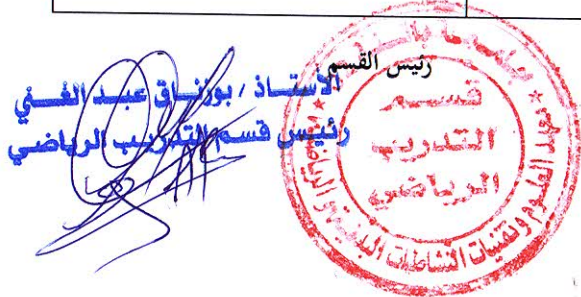 رئيس القسم
الأستاذ / بوزناق عبد الغني
رئيس قسم التدريب الرياضي
قسم
التدريب
الرياضي
معهد العلوم وتقنيات النشاطات البدنية و الرياضية